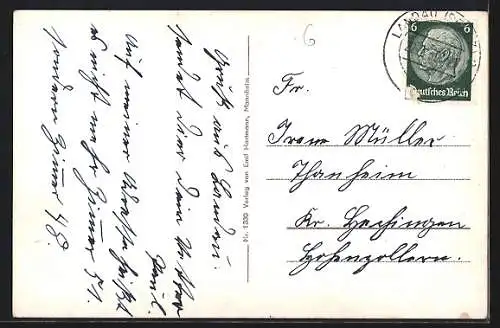 Gruß aus Landau.
sendet Dir Dein Vetter
Paul.
Auf meiner Adresse heißt
es nicht mehr Zimmer 51.
sondern Zimmer 48.
Nr. 1330 Verlag von Emil Hartmann, Mannheim
6
LANDAU
6 6
Deutsches Reich
Fr.
Irene Müller
Thanheim
Kr. Hechingen
Hohenzollern.